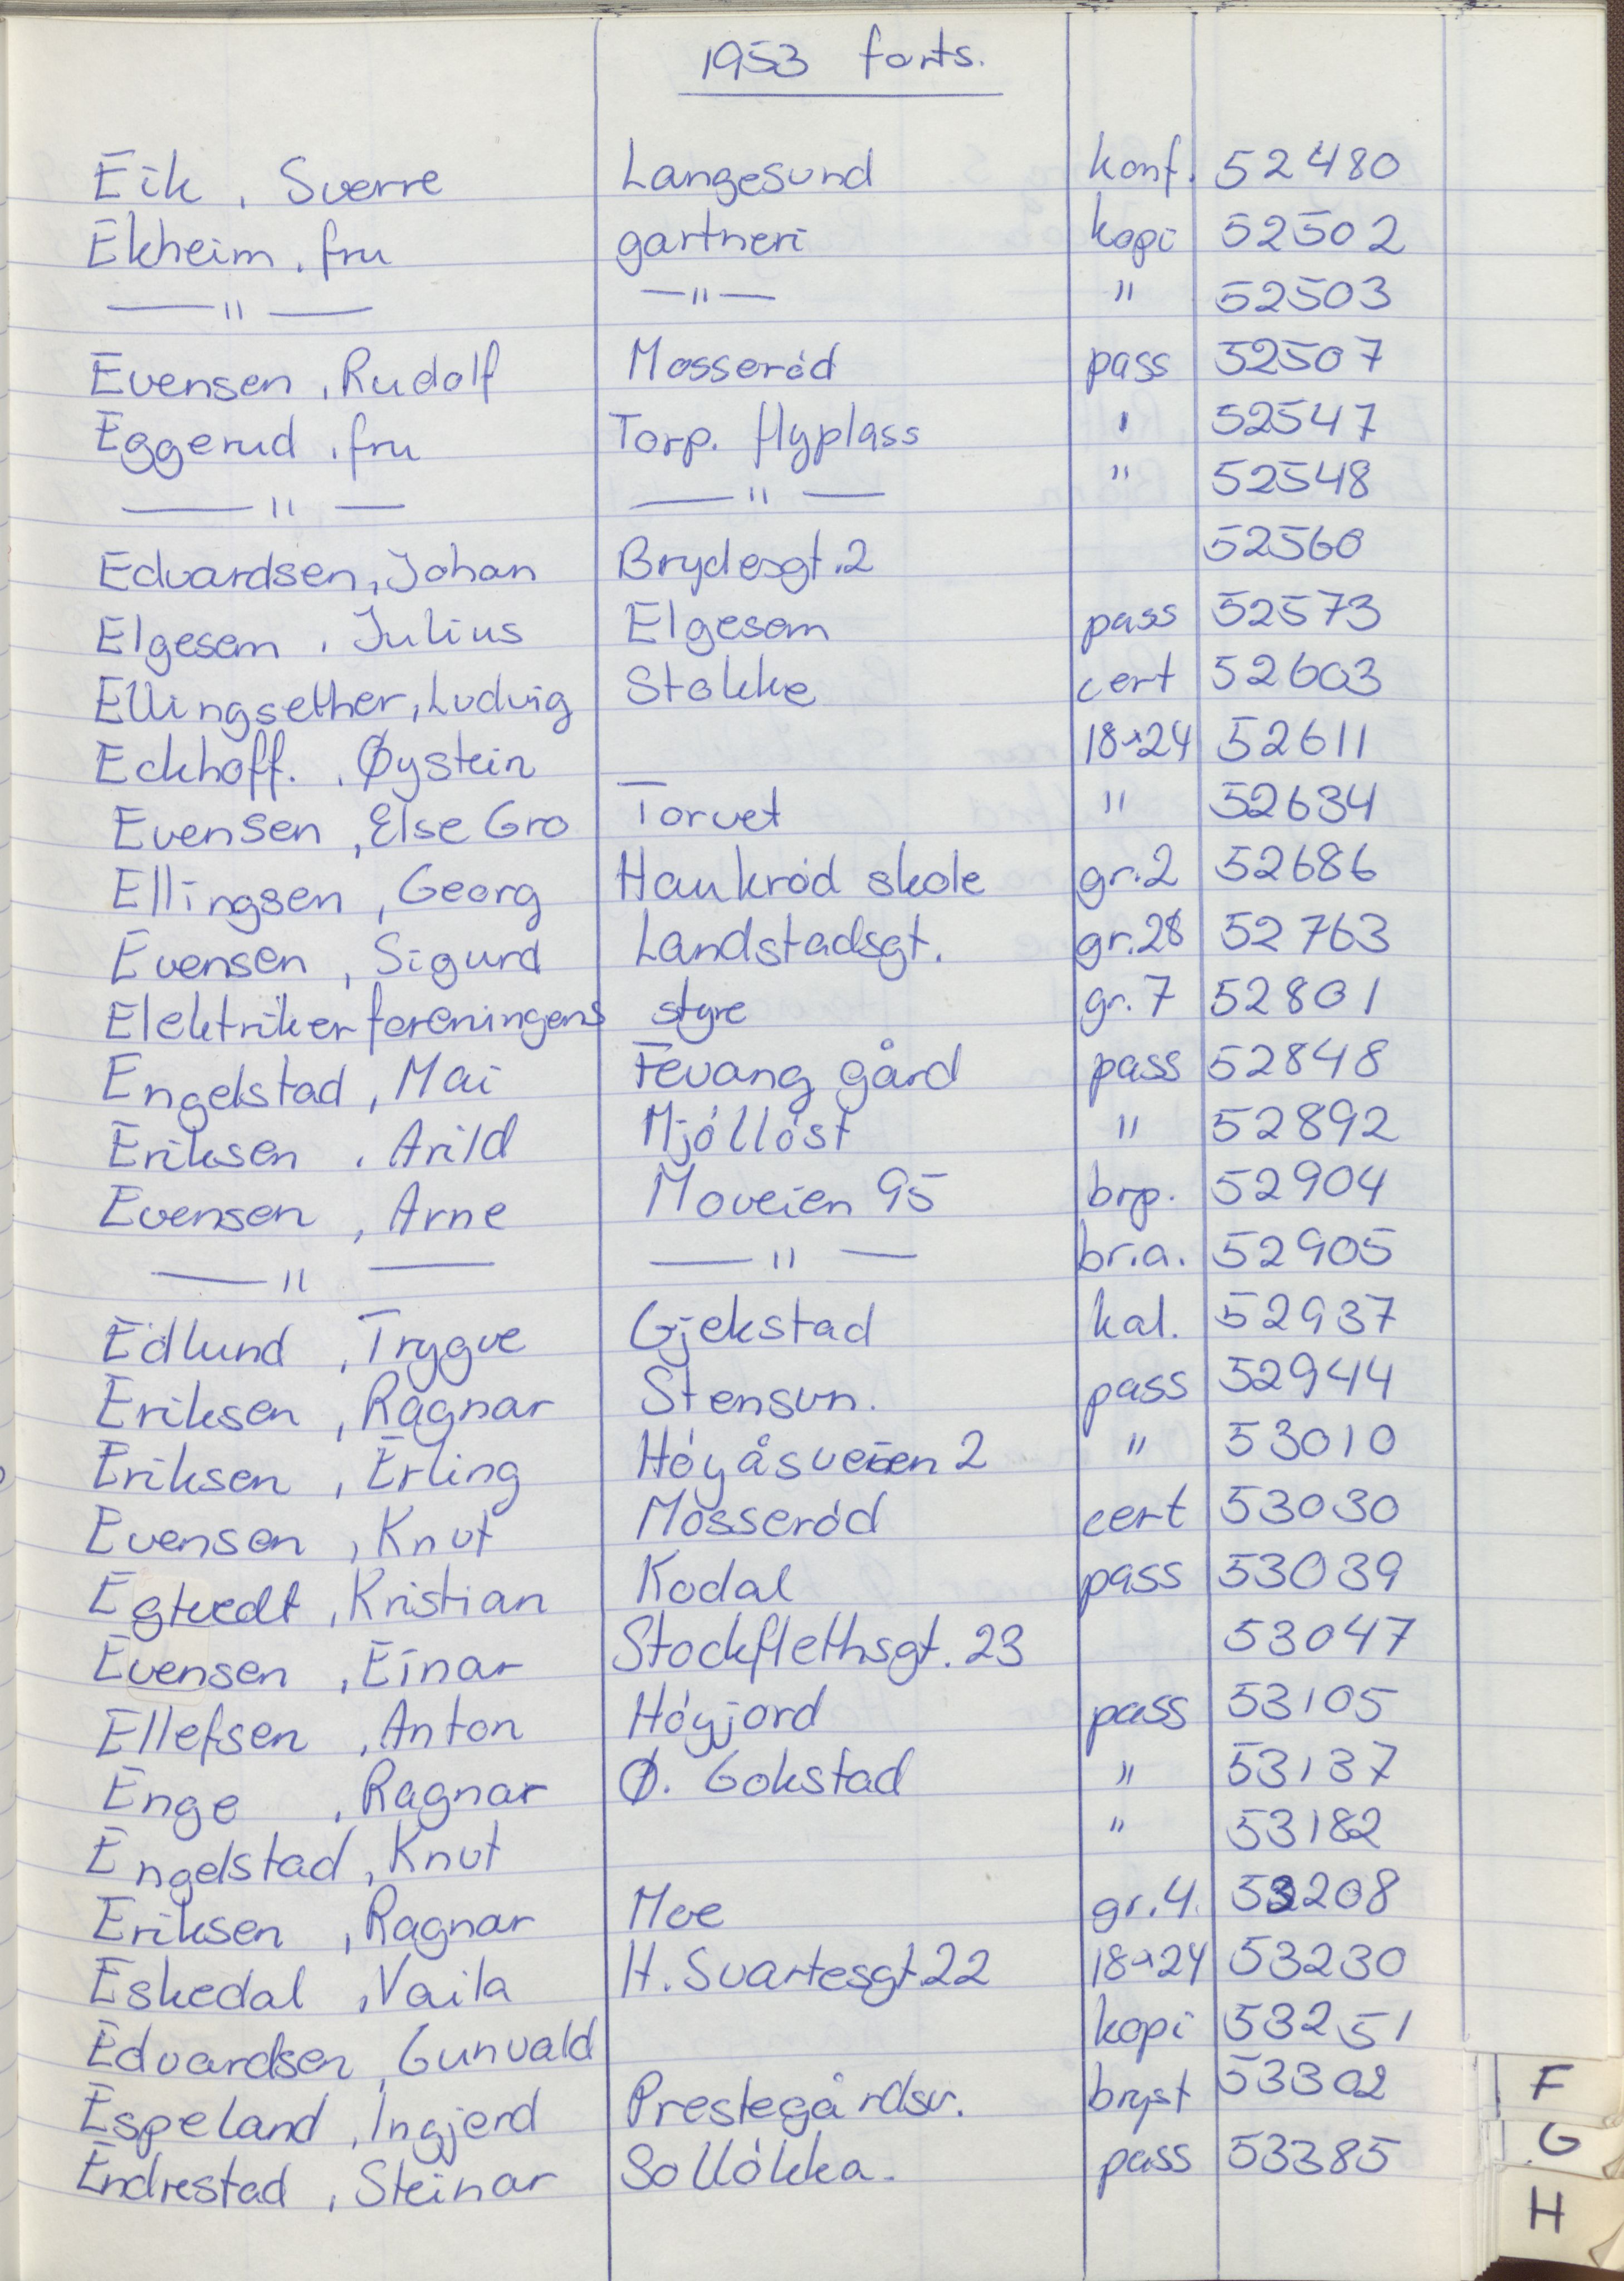 1953 forts.
Eik, Sverre Langesund konf. 52480
Ekheim, fru gartneri kopi 52502
—"— —"— " 52503
Evensen, Rudolf Mosseród pass 52507
Eggerud, fru Torp. flyplass " 52547
—"— —"— " 52548
Edvardsen, Johan Brydesgt.2 52560
Elgesem, Julius Elgesem pass 52573
Ellingsether, Ludvig Stokke cert 52603
Eckhoff., Øystein 18x24 52611
Evensen, Else Gro Torvet " 52634
Ellingsen, Georg Haukród skole gr.2 52686
Evensen, Sigurd Landstadsgt. gr.28 52763
Elektrikerforeningens styre gr.7 52801
Engelstad, Mai Fevang gård pass 52848
Eriksen, Arild Mjóllóst " 52892
Evensen, Arne Moveien 95 brp. 52904
—"— —"— br.a. 52905
Edlund, Trygve Gjekstad kal. 52937
Eriksen, Ragnar Stensvn. pass 52944
Eriksen, Erling Hóyåsveien 2 " 53010
Evensen, Knut Mosseród cert 53030
Egtvedt, Kristian Kodal pass 53039
Evensen, Einar Stockflethsgt. 23 53047
Ellefsen, Anton Hóyjord pass 53105
Enge, Ragnar Ø. Gokstad " 53137
Engelstad, Knut " 53182
Eriksen, Ragnar Moe gr.4. 53208
Eskedal, Vaila H. Svartesgt.22 18x24 53230
Edvardsen, Gunvald kopi 53251
Espeland, Ingjerd Prestegårdsv. bryst 53302
Endrestad, Steinar Sollókka. pass 53385
F
G
H